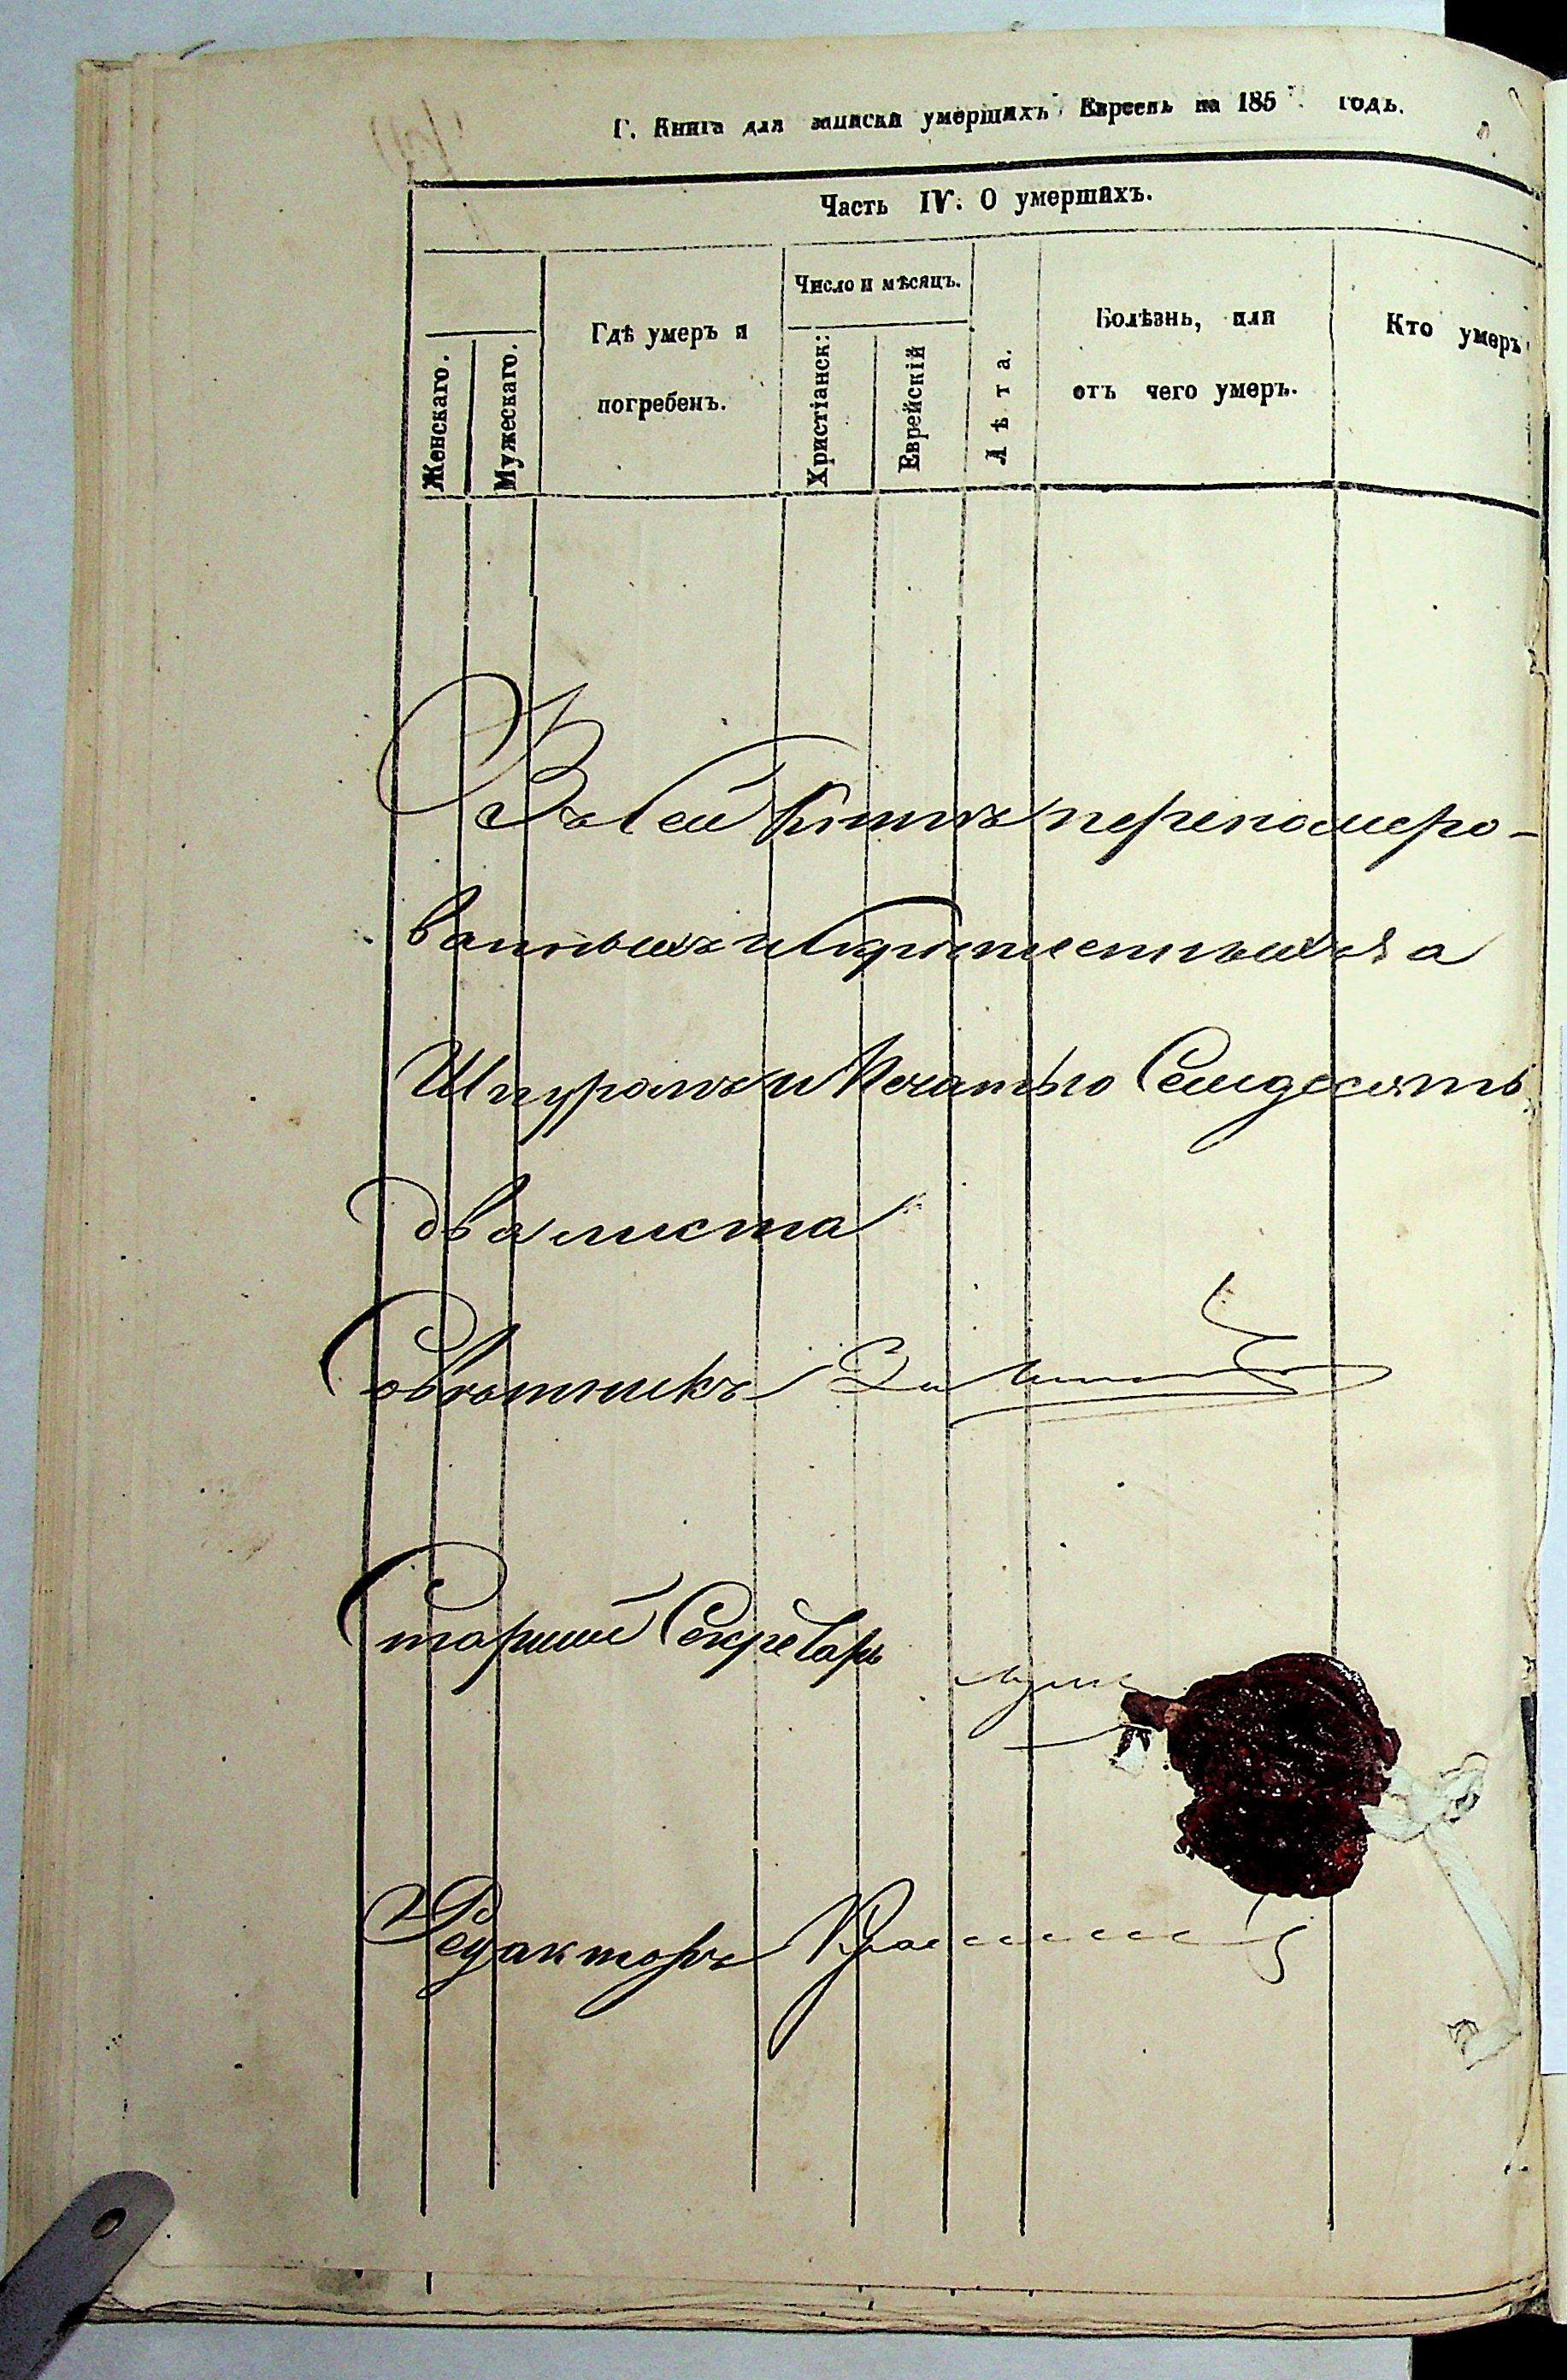 Г. Книга для записки умершихъ Евреевъ на 185 годъ.
Часть IV. О умершихъ.
Женскаго.
Мужескаго.
Гдѣ умеръ и
погребенъ.
Число и мѣсяцъ.
Христіанск:
Еврейскій
Лѣта.
Болѣзнь, или
отъ чего умеръ.
Кто умеръ
Въ сей Книгѣ перепомеро-
ванныхъ и скрепленныхъ за
Шнуромъ и Печатью Семдесять
два листа
Совѣтникъ
Старшій Секретарь
Редакторъ